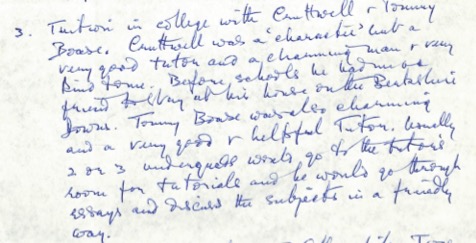 3. Tuition in college with Cruttwell & Tommy
Boase. Cruttwell was a 'character' but a
very good tutor and a charming man & very
kind to me. Before schools he had me & a
friend to stay at his house on the Berkshire
Downs. Tommy Boase was also charming
and a very good & helpful Tutor. Usually
2 or 3 undergrads would go to the tutor's
room for tutorials and he would go through
essays and discuss the subjects in a friendly
way.